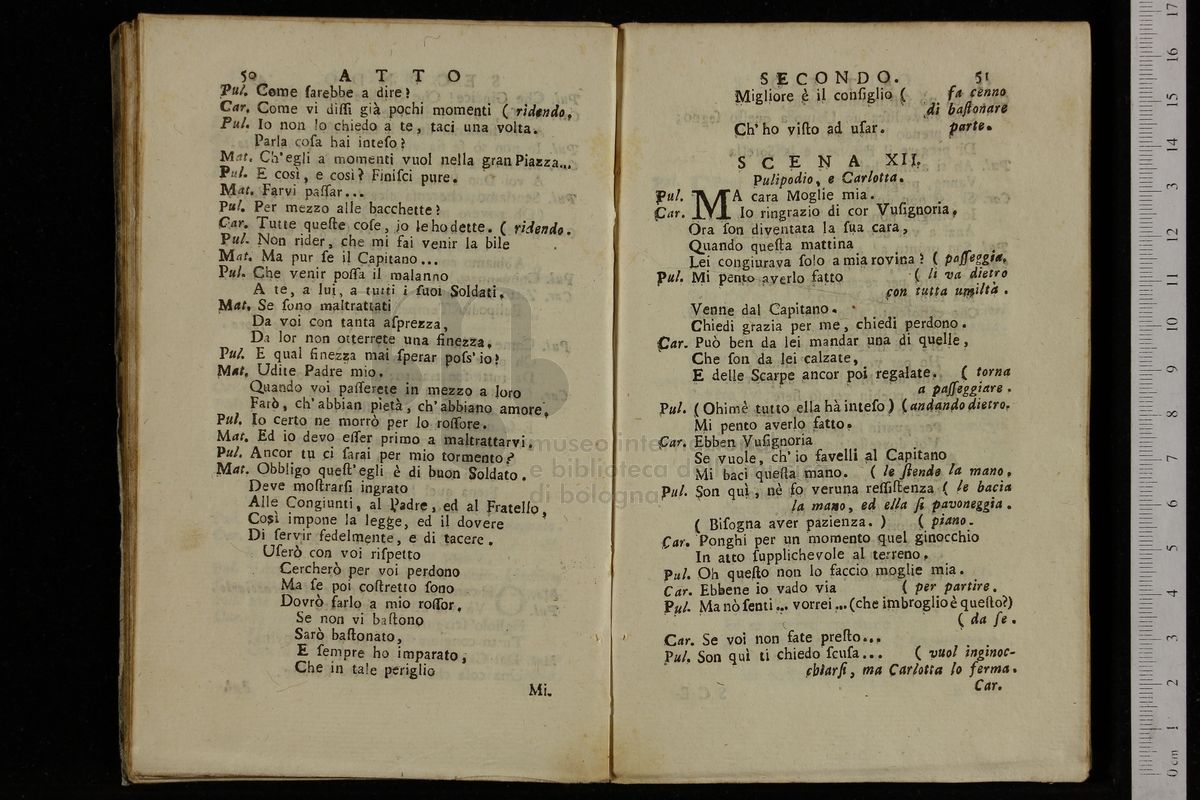 50 A T T O
Pul. Come ſarebbe a dire?
Car. Come vi diſſi già pochi momenti ( ridendo.
Pul. Io non lo chiedo a te, taci una volta.
Parla coſa hai inteſo?
Mat. Ch'egli a momenti vuol nella gran Piazza...
Pul. E così, e così? Finiſci pure.
Mat. Farvi paſſar...
Pul. Per mezzo alle bacchette?
Car. Tutte queſte coſe, io le ho dette. ( ridendo.
Pul. Non rider, che mi fai venir la bile
Mat. Ma pur ſe il Capitano...
Pul. Che venir poſſa il malanno
A te, a lui, a tutti i ſuoi Soldati.
Mat. Se ſono maltrattati
Da voi con tanta aſprezza,
Da lor non otterrete una finezza.
Pul. E qual finezza mai ſperar poſs'io?
Mat. Udite Padre mio.
Quando voi paſſerete in mezzo a loro
Farò, ch'abbian pietà, ch'abbiano amore.
Pul. Io certo ne morrò per lo roſſore.
Mat. Ed io devo eſſer primo a maltrattarvi.
Pul. Ancor tu ci ſarai per mio tormento?
Mat. Obbligo queſt'egli è di buon Soldato.
Deve moſtrarſi ingrato
Alle Congiunti, al Padre, ed al Fratello,
Così impone la legge, ed il dovere
Di ſervir fedelmente, e di tacere.
Uſerò con voi riſpetto
Cercherò per voi perdono
Ma ſe poi coſtretto ſono
Dovrò farlo a mio roſſor.
Se non vi baſtono
Sarò baſtonato,
E ſempre ho imparato,
Che in tale periglio
Mi.
SECONDO. 51
Migliore è il conſiglio ( fa cenno
di baſtonare
Ch'ho viſto ad uſar. parte.
S C E N A XII.
Pulipodio, e Carlotta.
Pul. MA cara Moglie mia.
Car. Io ringrazio di cor Vuſignoria.
Ora ſon diventata la ſua cara,
Quando queſta mattina
Lei congiurava ſolo a mia rovina? ( paſſeggia.
Pul. Mi pento averlo fatto ( li va dietro
con tutta umiltà.
Venne dal Capitano.
Chiedi grazia per me, chiedi perdono.
Car. Può ben da lei mandar una di quelle,
Che ſon da lei calzate,
E delle Scarpe ancor poi regalate. ( torna
a paſſeggiare.
Pul. ( Ohimè tutto ella hà inteſo ) ( andando dietro.
Mi pento averlo fatto.
Car. Ebben Vuſignoria
Se vuole, ch'io favelli al Capitano
Mi baci queſta mano. ( le ſtende la mano.
Pul. Son quì, nè fo veruna reſſiſtenza ( le bacia
la mano, ed ella ſi pavoneggia.
( Biſogna aver pazienza. ) ( piano.
Car. Ponghi per un momento quel ginocchio
In atto ſupplichevole al terreno.
Pul. Oh queſto non lo faccio moglie mia.
Car. Ebbene io vado via ( per partire.
Pul. Ma nò ſenti... vorrei... (che imbroglio è queſto?)
( da ſe.
Car. Se voi non fate preſto...
Pul. Son quì ti chiedo ſcuſa... ( vuol inginoc-
chiarſi, ma Carlotta lo ferma.
Car.